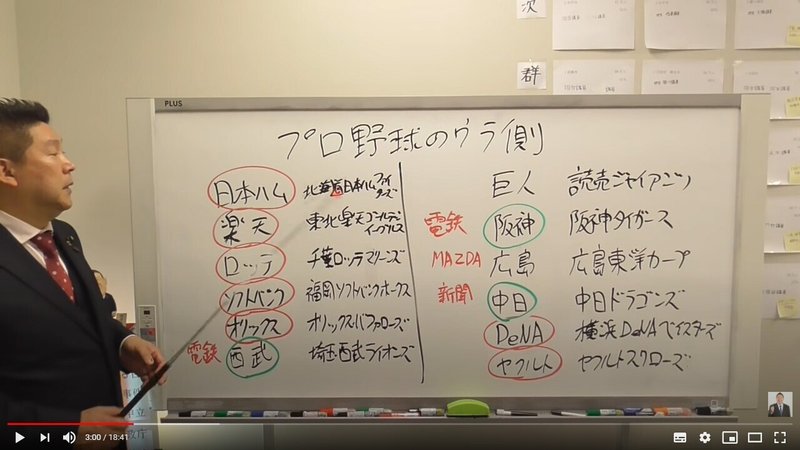 次
群
PLUS
プロ野球のウラ側
日本ハム 北海道日本ハムファイターズ
楽天 東北楽天ゴールデンイーグルス
ロッテ 千葉ロッテマリーンズ
ソフトバンク 福岡ソフトバンクホークス
オリックス オリックスバファローズ
電鉄 西武 埼玉西武ライオンズ
巨人 読売ジャイアンツ
電鉄 阪神 阪神タイガース
MAZDA 広島 広島東洋カープ
新聞 中日 中日ドラゴンズ
DeNA 横浜DeNAベイスターズ
ヤクルト ヤクルトスワローズ
3:00 / 18:41